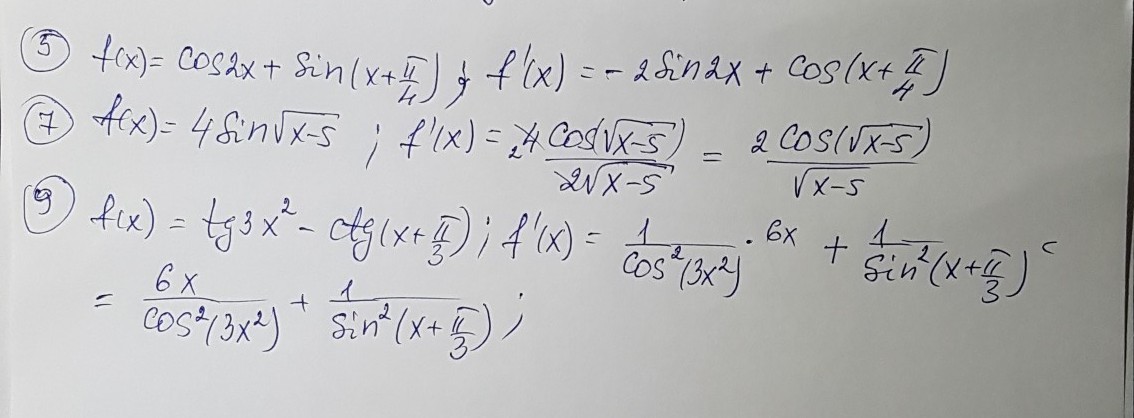 ⑤ f(x) = cos2x + sin(x+π/4); f'(x) = -2sin2x + cos(x+π/4)
⑦ f(x) = 4sin√(x-5) ; f'(x) = 4cos(√(x-5))/(2√(x-5)) = 2cos(√(x-5))/√(x-5)
⑨ f(x) = tg3x² - ctg(x+π/3); f'(x) = 1/cos²(3x²) · 6x + 1/sin²(x+π/3) =
= 6x/cos²(3x²) + 1/sin²(x+π/3);